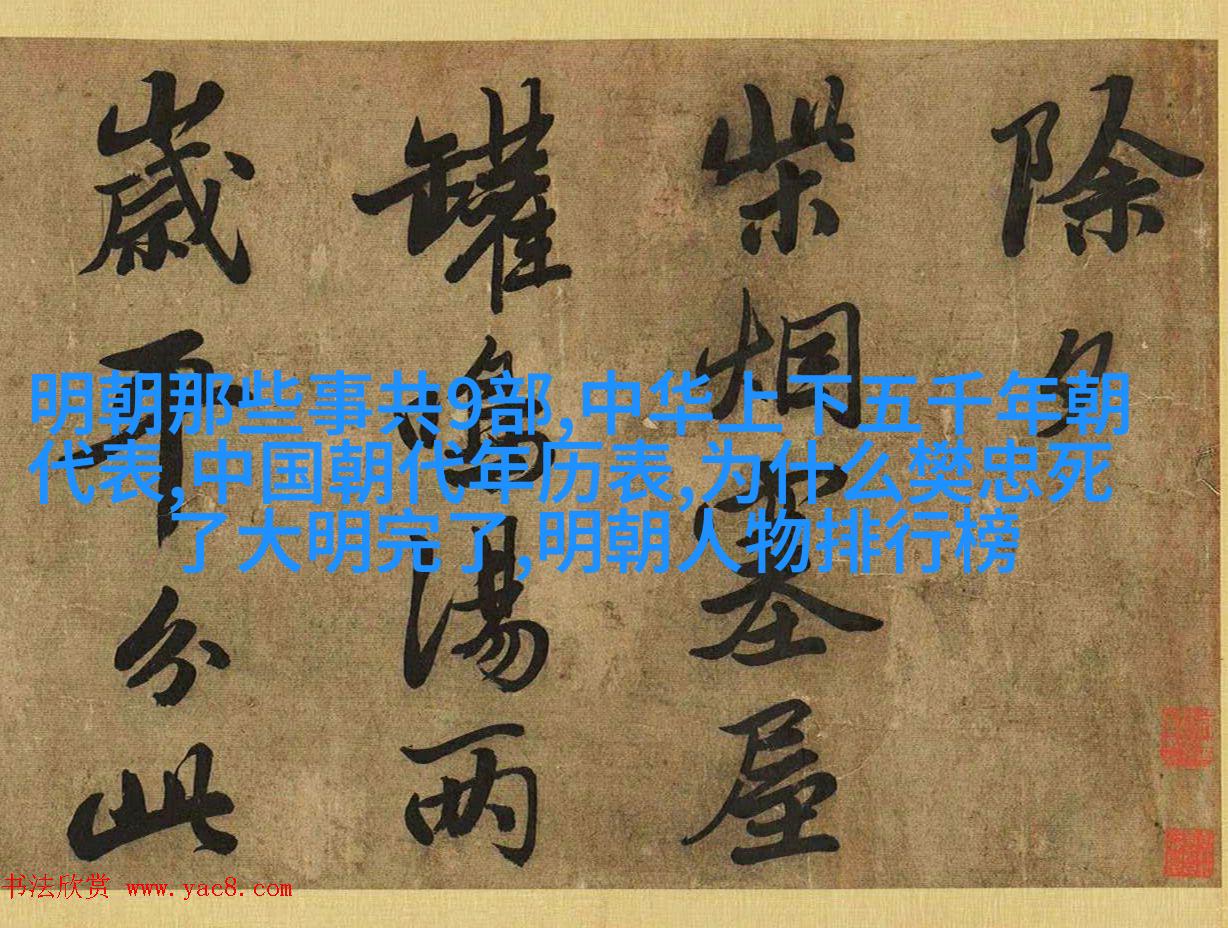 除夕
柴烟塞屋
罐鳴湯两
歲平分此
明朝那些事共9部,中华上下五千年朝
代表,中国朝代年历表,为什么樊忠死
了大明完了,明朝人物排行榜
书法欣赏 www.yac8.com